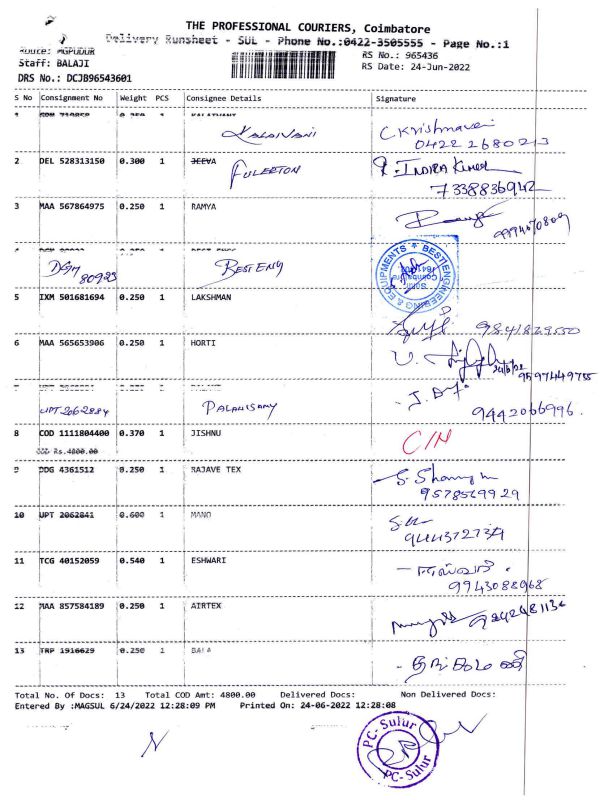 THE PROFESSIONAL COURIERS, Coimbatore
Delivery Runsheet - SUL - Phone No.:0422-3505555 - Page No.:1
Route: MGPUDUR
RS No.: 965436
Staff: BALAJI
RS Date: 24-Jun-2022
DRS No.: DCJB96543601
S No Consignment No Weight PCS Consignee Details Signature
1 0.250 1 KALAIVANI
KALAIVANI C Krishnaveni
0422 2680213
2 DEL 528313150 0.300 1 JEEVA
FULERTON R. INDIRA Kumar
7338836942
3 MAA 567864975 0.250 1 RAMYA
9994070809
BEST ENGG
DGM 80923 BEST ENG
BEST ENGINEERING & EQUIPMENTS
Coimbatore
5 IXM 501681694 0.250 1 LAKSHMAN
9841829550
6 MAA 565653906 0.250 1 HORTI
24/6/22
9597449755
UPT 2062884 PALANISAMY J.
9442066996.
8 COD 1111804400 0.370 1 JISHNU C/N
COD Rs.4800.00
9 DDG 4361512 0.250 1 RAJAVE TEX
9578569929
10 UPT 2062841 0.600 1 MANO
11 TCG 40152059 0.540 1 ESHWARI ஈஸ்வரி
9943088968
12 MAA 857584189 0.250 1 AIRTEX
9242481136
13 TRP 1916629 0.250 1 BALA
Total No. Of Docs: 13 Total COD Amt: 4800.00 Delivered Docs: Non Delivered Docs:
Entered By :MAGSUL 6/24/2022 12:28:09 PM Printed On: 24-06-2022 12:28:08
PC- Sulur
PC- Sulur